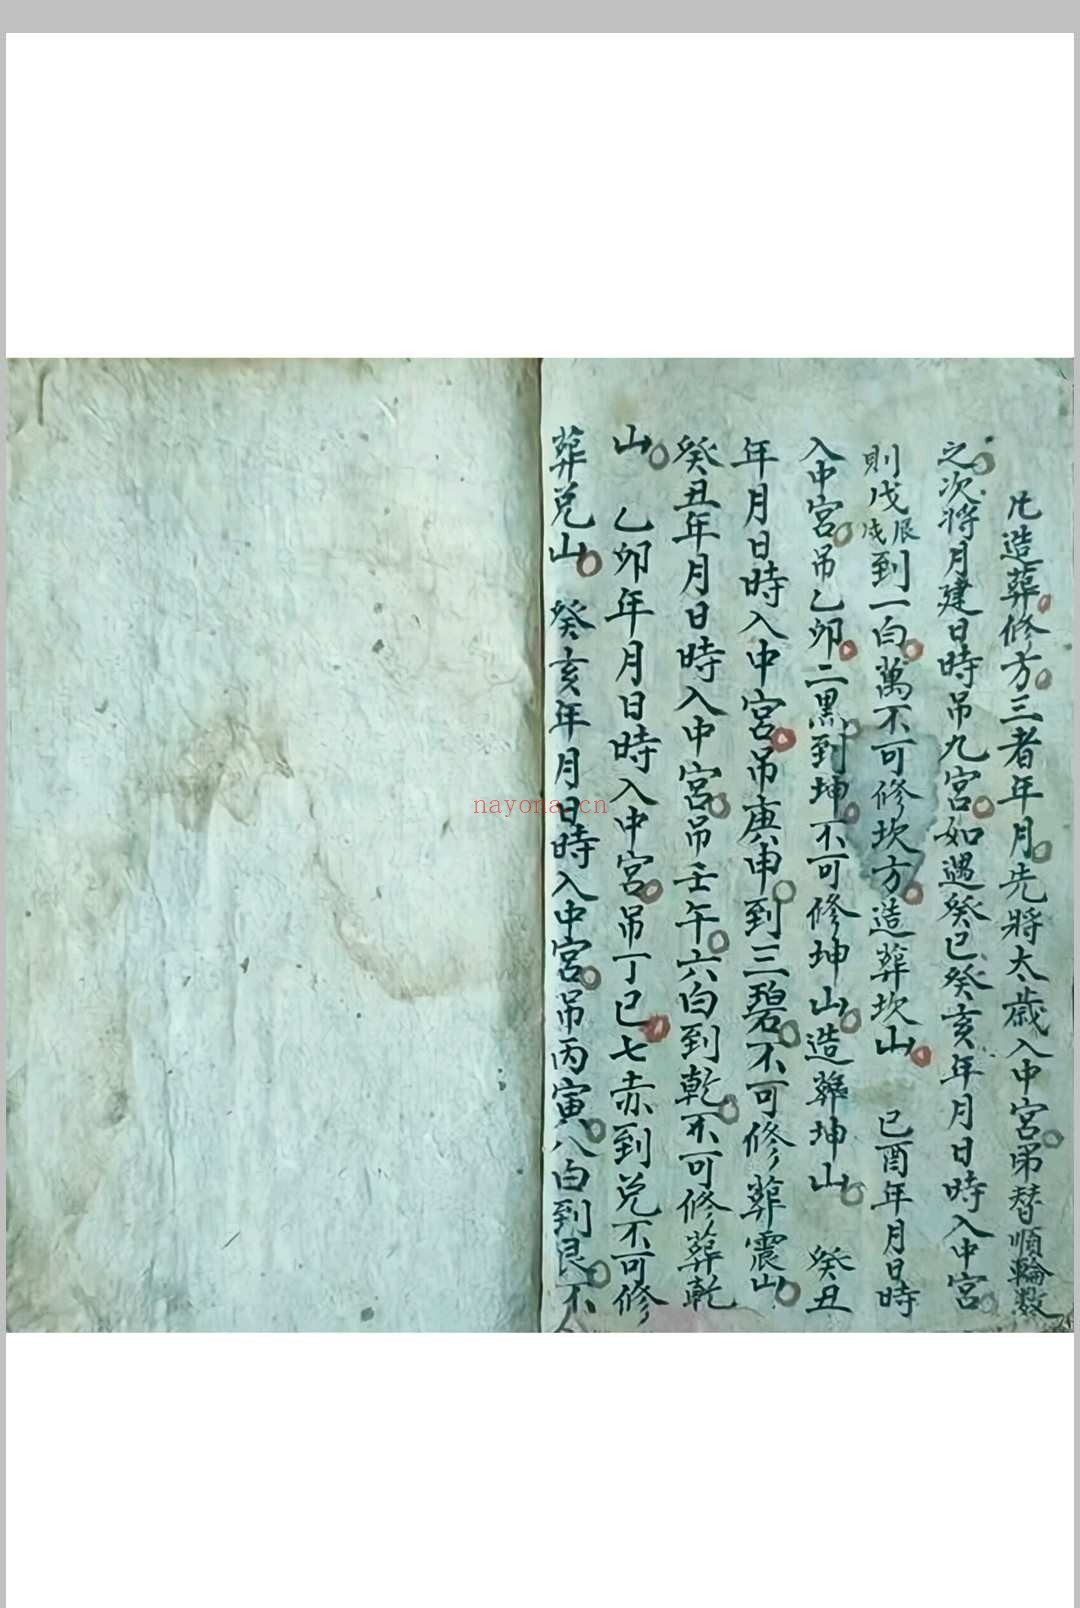 凡造葬修方三者年月先將太歲入中宮吊替順輪数
之次將月建日時吊九宮如遇癸巳癸亥年月日時入中宮
則戊辰戌到一白萬不可修坎方造葬坎山 己酉年月日時
入中宮吊乙卯二黑到坤不可修坤山造葬坤山 癸丑
年月日時入中宮吊庚申到三碧不可修葬震山
癸丑年月日時入中宮吊壬午六白到乾不可修葬乾
山 乙卯年月日時入中宮吊丁巳七赤到兌不可修
葬兌山 癸亥年月日時入中宮吊丙寅八白到艮不
nayona.cn